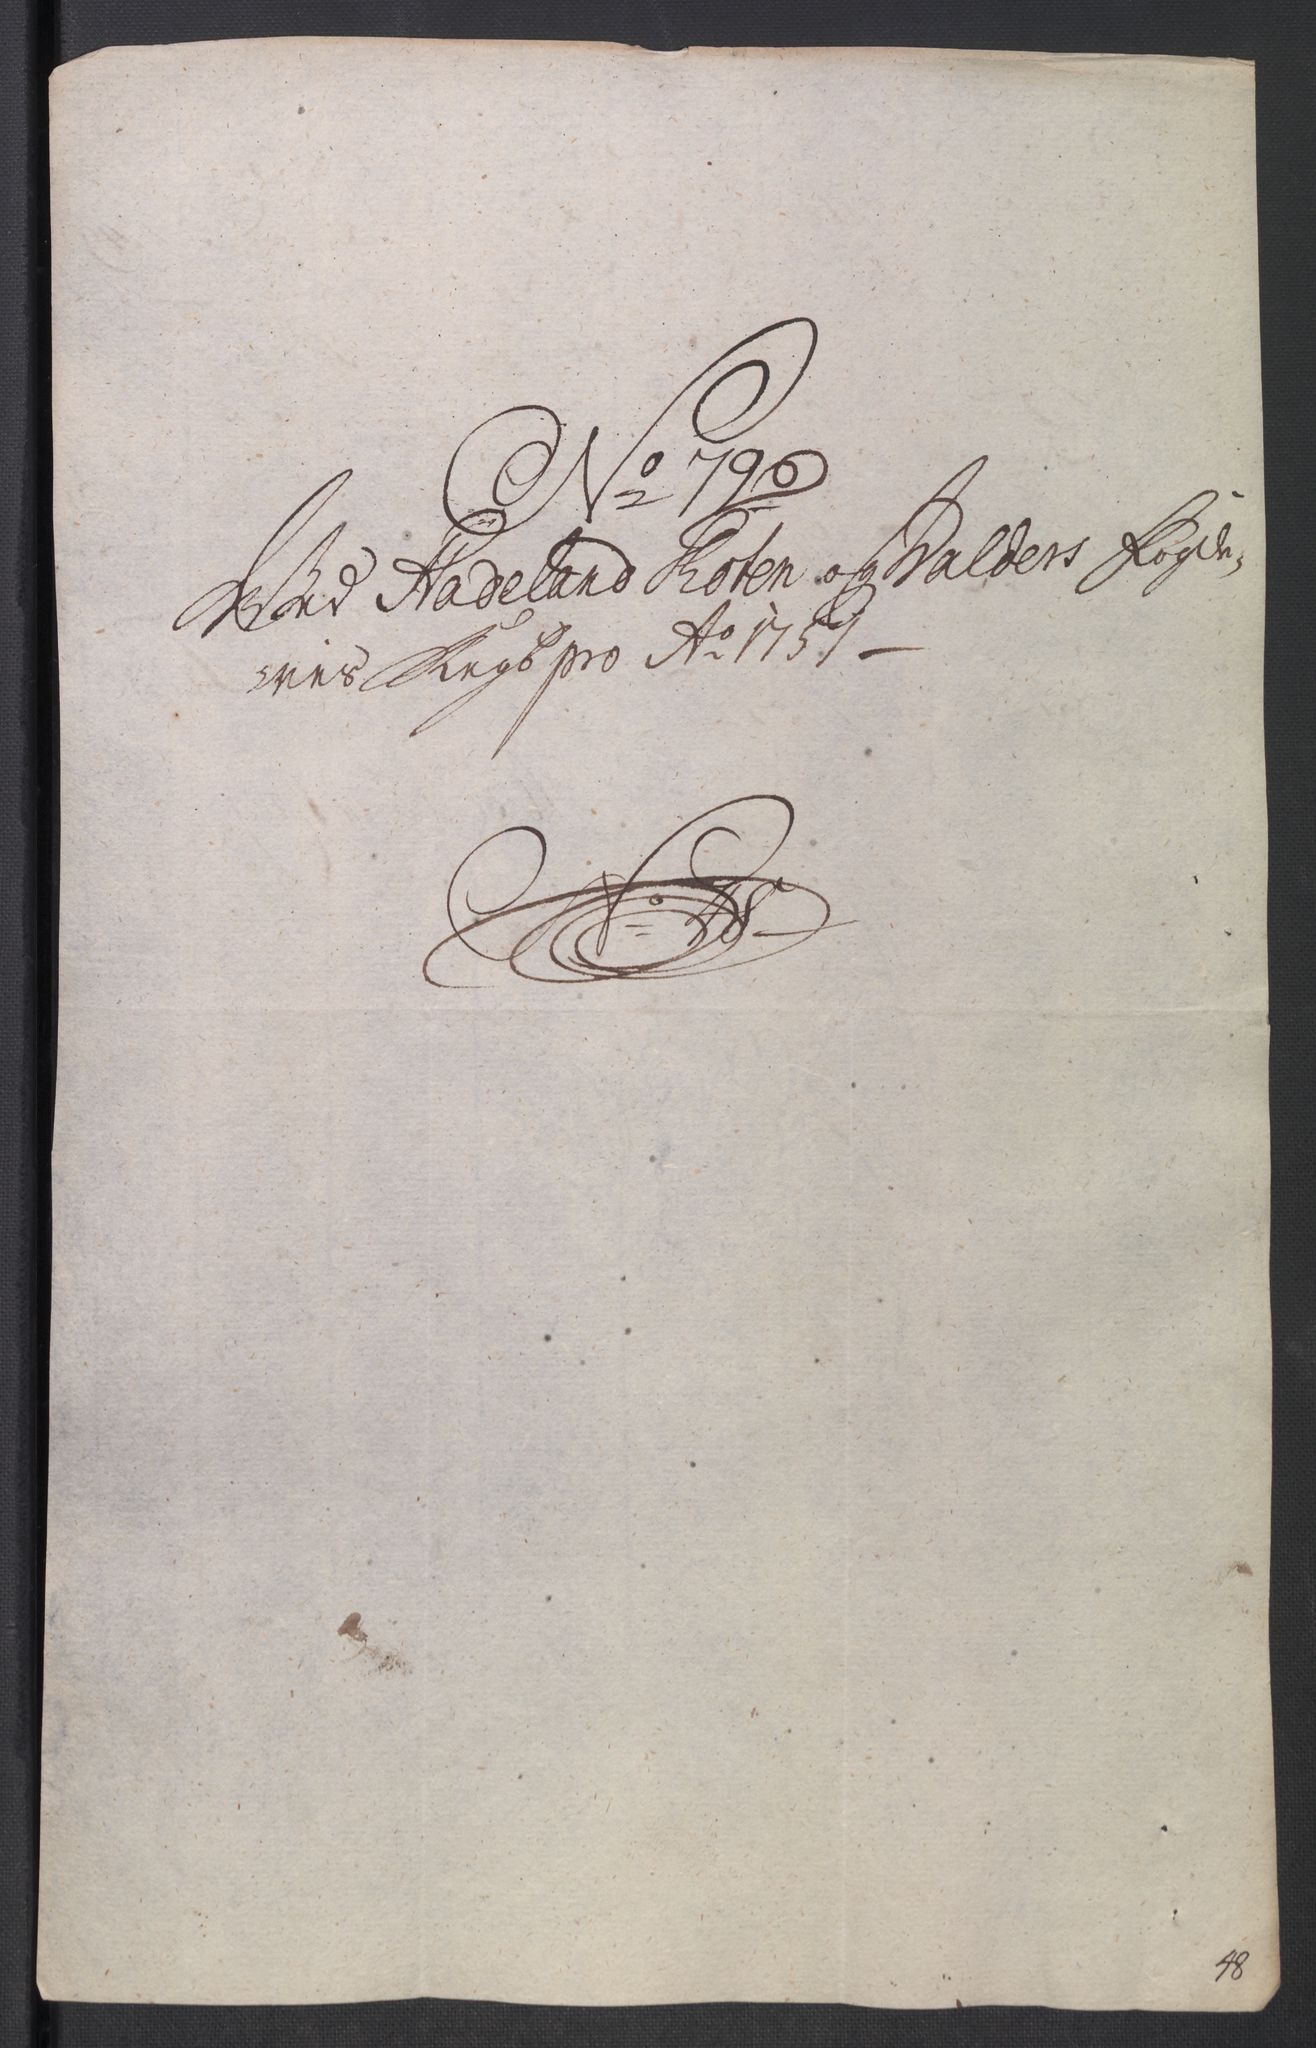 No 796
Ved Hadeland Toten og Valders Fogde-
ries Regsk pro Ao 1751
No 48
48